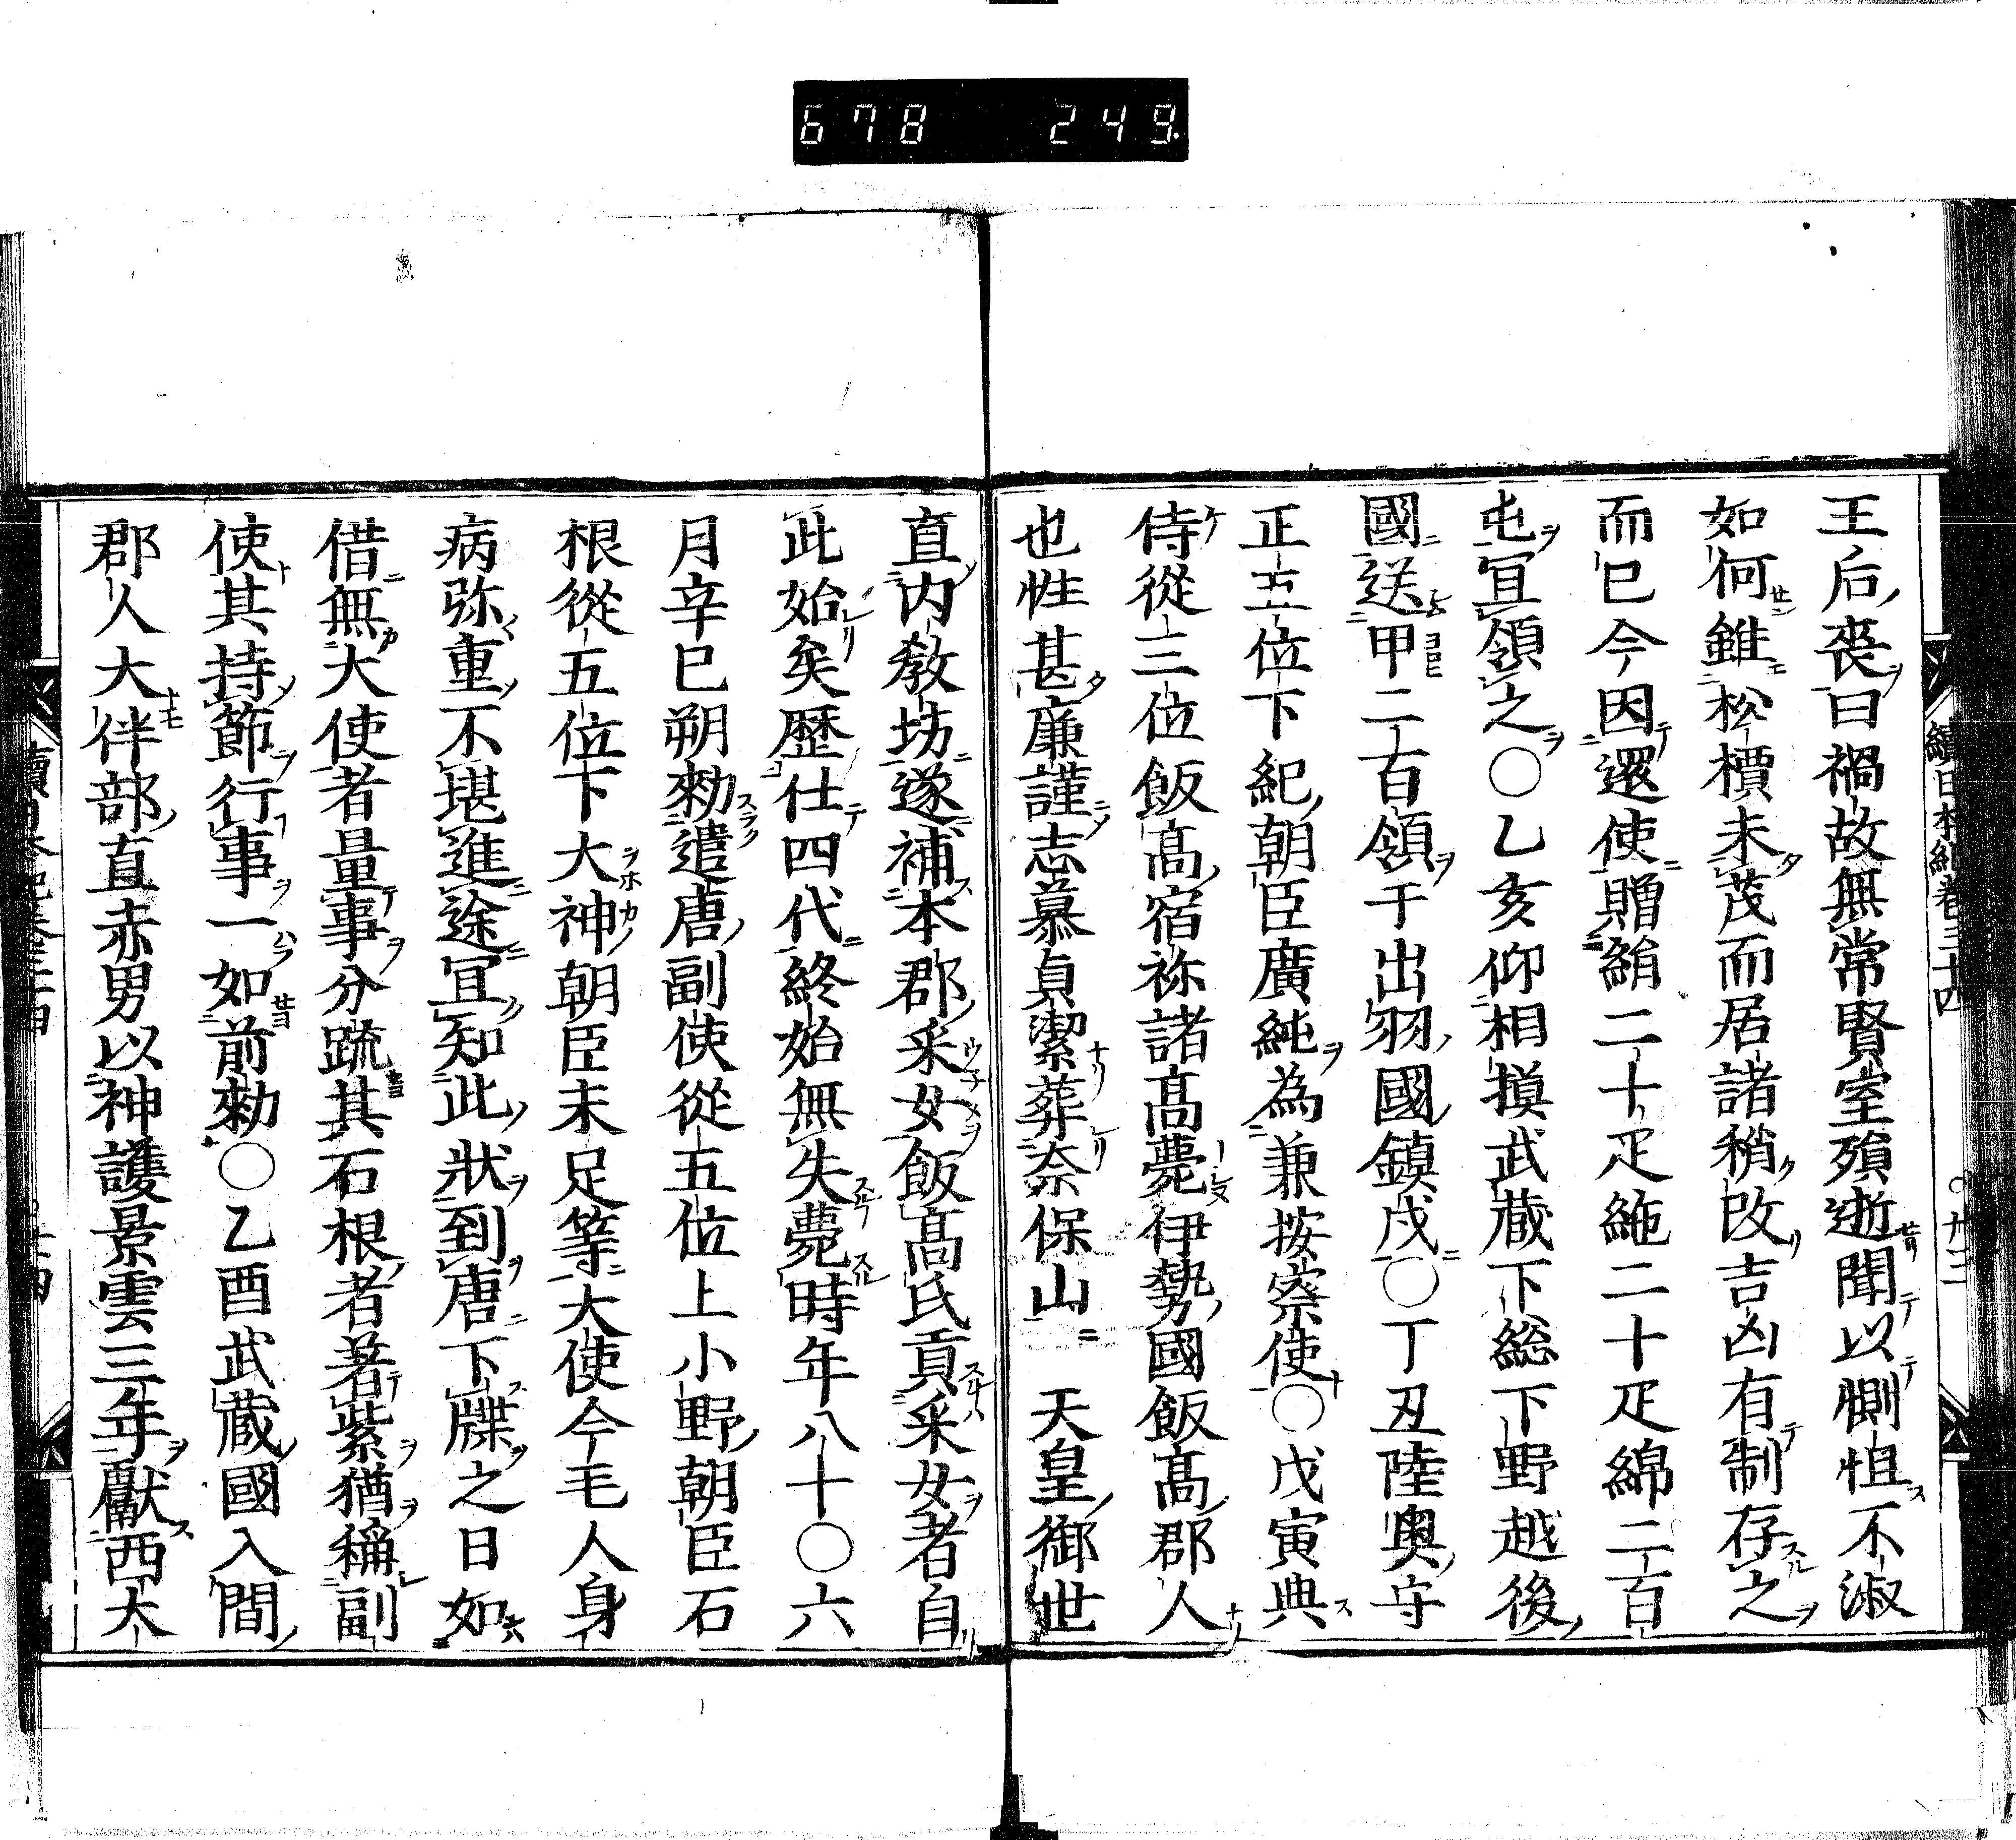 678 249
續日本紀卷三十四
王后喪曰禍故無常賢室殞逝聞以惻怛不淑
如何雖松檟未茂而居諸稍改吉凶有制存之
而已今因還使贈絹二十疋絁二十疋綿二百
屯冝領之〇乙亥仰相摸武藏下総下野越後
國送甲二百領于出羽國鎭戍〇丁丑陸奥守
正五位下紀朝臣廣純為兼按察使〇戊寅典
侍從三位飯髙宿祢諸髙薨伊勢國飯髙郡人
也性甚廉謹志慕貞潔葬奈保山 天皇御世
直内教坊遂補本郡采女飯髙氏貢采女者自
此始矣歷仕四代終始無失薨時年八十〇六
月辛巳朔勅遣唐副使從五位上小野朝臣石
根從五位下大神朝臣末足等大使今毛人身
病弥重不堪進途冝知此狀到唐下牒之日如
借無大使者量事分疏其石根者著紫猶稱副
使其持節行事一如前勅〇乙酉武藏國入間
郡人大伴部直赤男以神護景雲三年獻西大